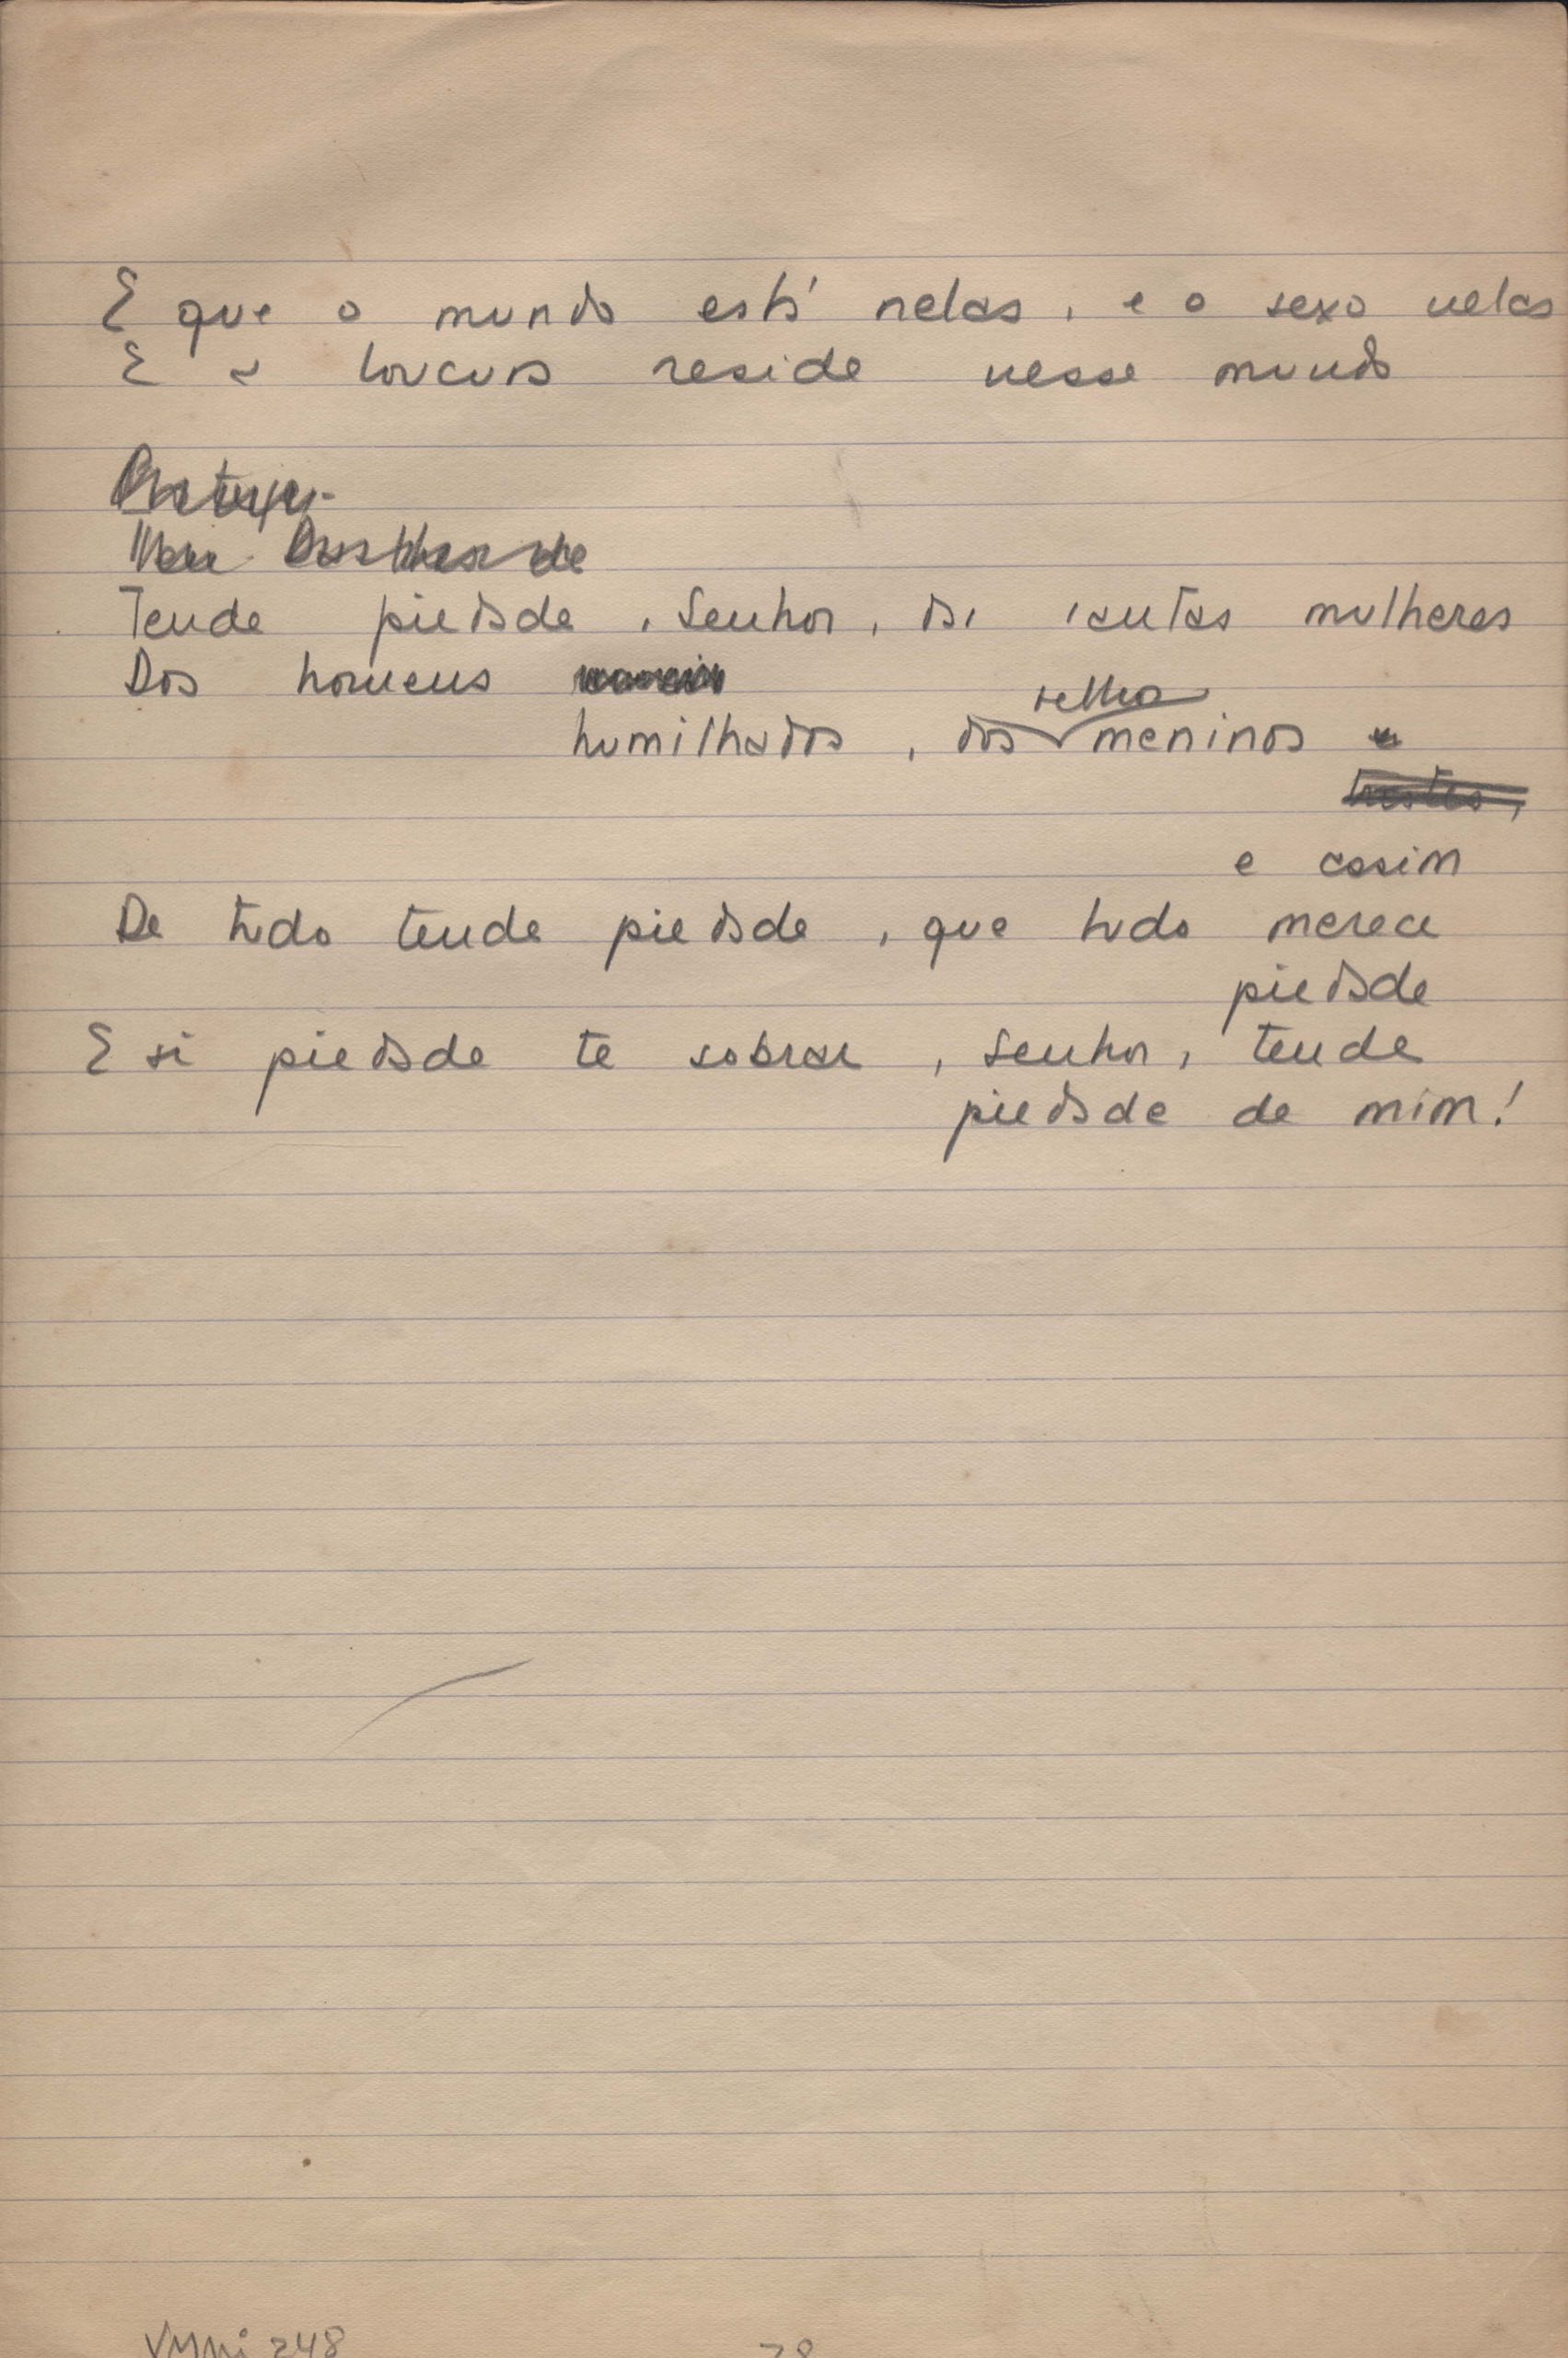 E que o mundo está nelas, e o sexo nelas
E a loucura reside nesse mundo
Tende piedade, Senhor, das santas mulheres
Dos homens
velhos
humilhados, dos meninos
tristes,
e assim
De tudo tende piedade, que tudo merece
piedade
E si piedade te sobrar, Senhor, tende
piedade de mim!
248
78